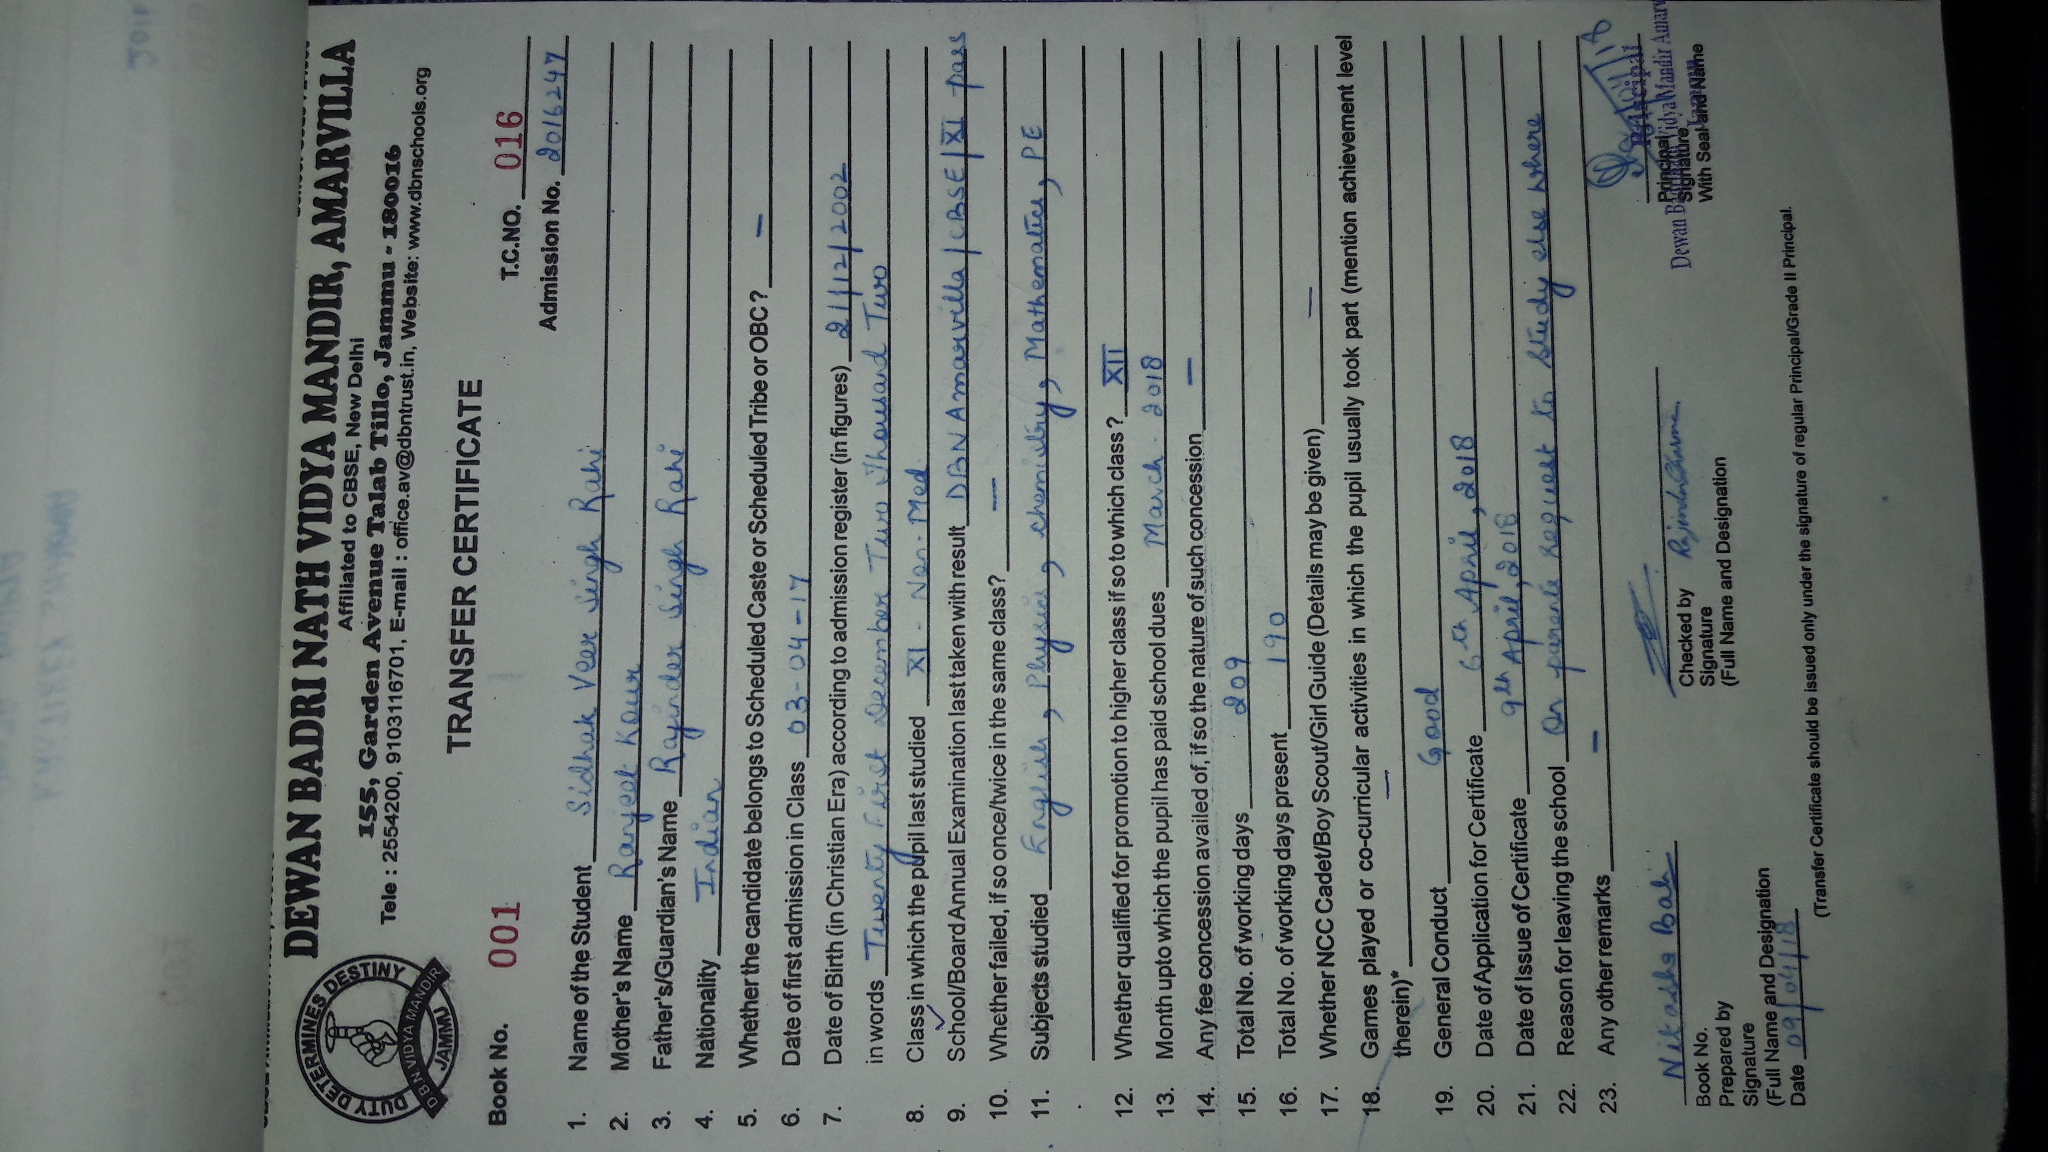 DEWAN BADRI NATH VIDYA MANDIR, AMARVILLA
Affiliated to CBSE, New Delhi
155, Garden Avenue Talab Tillo, Jammu - 180016
Tele : 2554200, 9103116701, E-mail : office.av@dbntrust.in, Website: www.dbnschools.org
DUTY DETERMINES DESTINY
DBN VIDYA MANDIR
JAMMU
TRANSFER CERTIFICATE
Book No. 001 T.C.NO. 016
Admission No. 2016247
1. Name of the Student Sidhak Veer Singh Rahi
2. Mother's Name Ranjeet Kour
3. Father's/Guardian's Name Rajinder Singh Rahi
4. Nationality Indian
5. Whether the candidate belongs to Scheduled Caste or Scheduled Tribe or OBC ? —
6. Date of first admission in Class 03-04-17
7. Date of Birth (in Christian Era) according to admission register (in figures) 21/12/2002
in words Twenty First December Two Thousand Two
8. Class in which the pupil last studied XI - Non-Med
9. School/Board Annual Examination last taken with result DBN Amarvilla/CBSE/XI pass
10. Whether failed, if so once/twice in the same class? —
11. Subjects studied English, Physics, chemistry, Mathematics, PE
12. Whether qualified for promotion to higher class if so to which class ? XII
13. Month upto which the pupil has paid school dues March. 2018
14. Any fee concession availed of, if so the nature of such concession —
15. Total No. of working days 209
16. Total No. of working days present 190
17. Whether NCC Cadet/Boy Scout/Girl Guide (Details may be given) —
18. Games played or co-curricular activities in which the pupil usually took part (mention achievement level
therein)* —
19. General Conduct Good
20. Date of Application for Certificate 6th April, 2018
21. Date of Issue of Certificate 9th April, 2018
22. Reason for leaving the school On parents request to study else where
23. Any other remarks —
Nikasha Bali
Book No.
Prepared by
Signature
(Full Name and Designation
Date 09/04/18
Checked by
Signature
(Full Name and Designation
Principal
Signature
With Seal and Name
Principal
Dewan Vidya Mandir
(Transfer Certificate should be issued only under the signature of regular Principal/Grade II Principal.